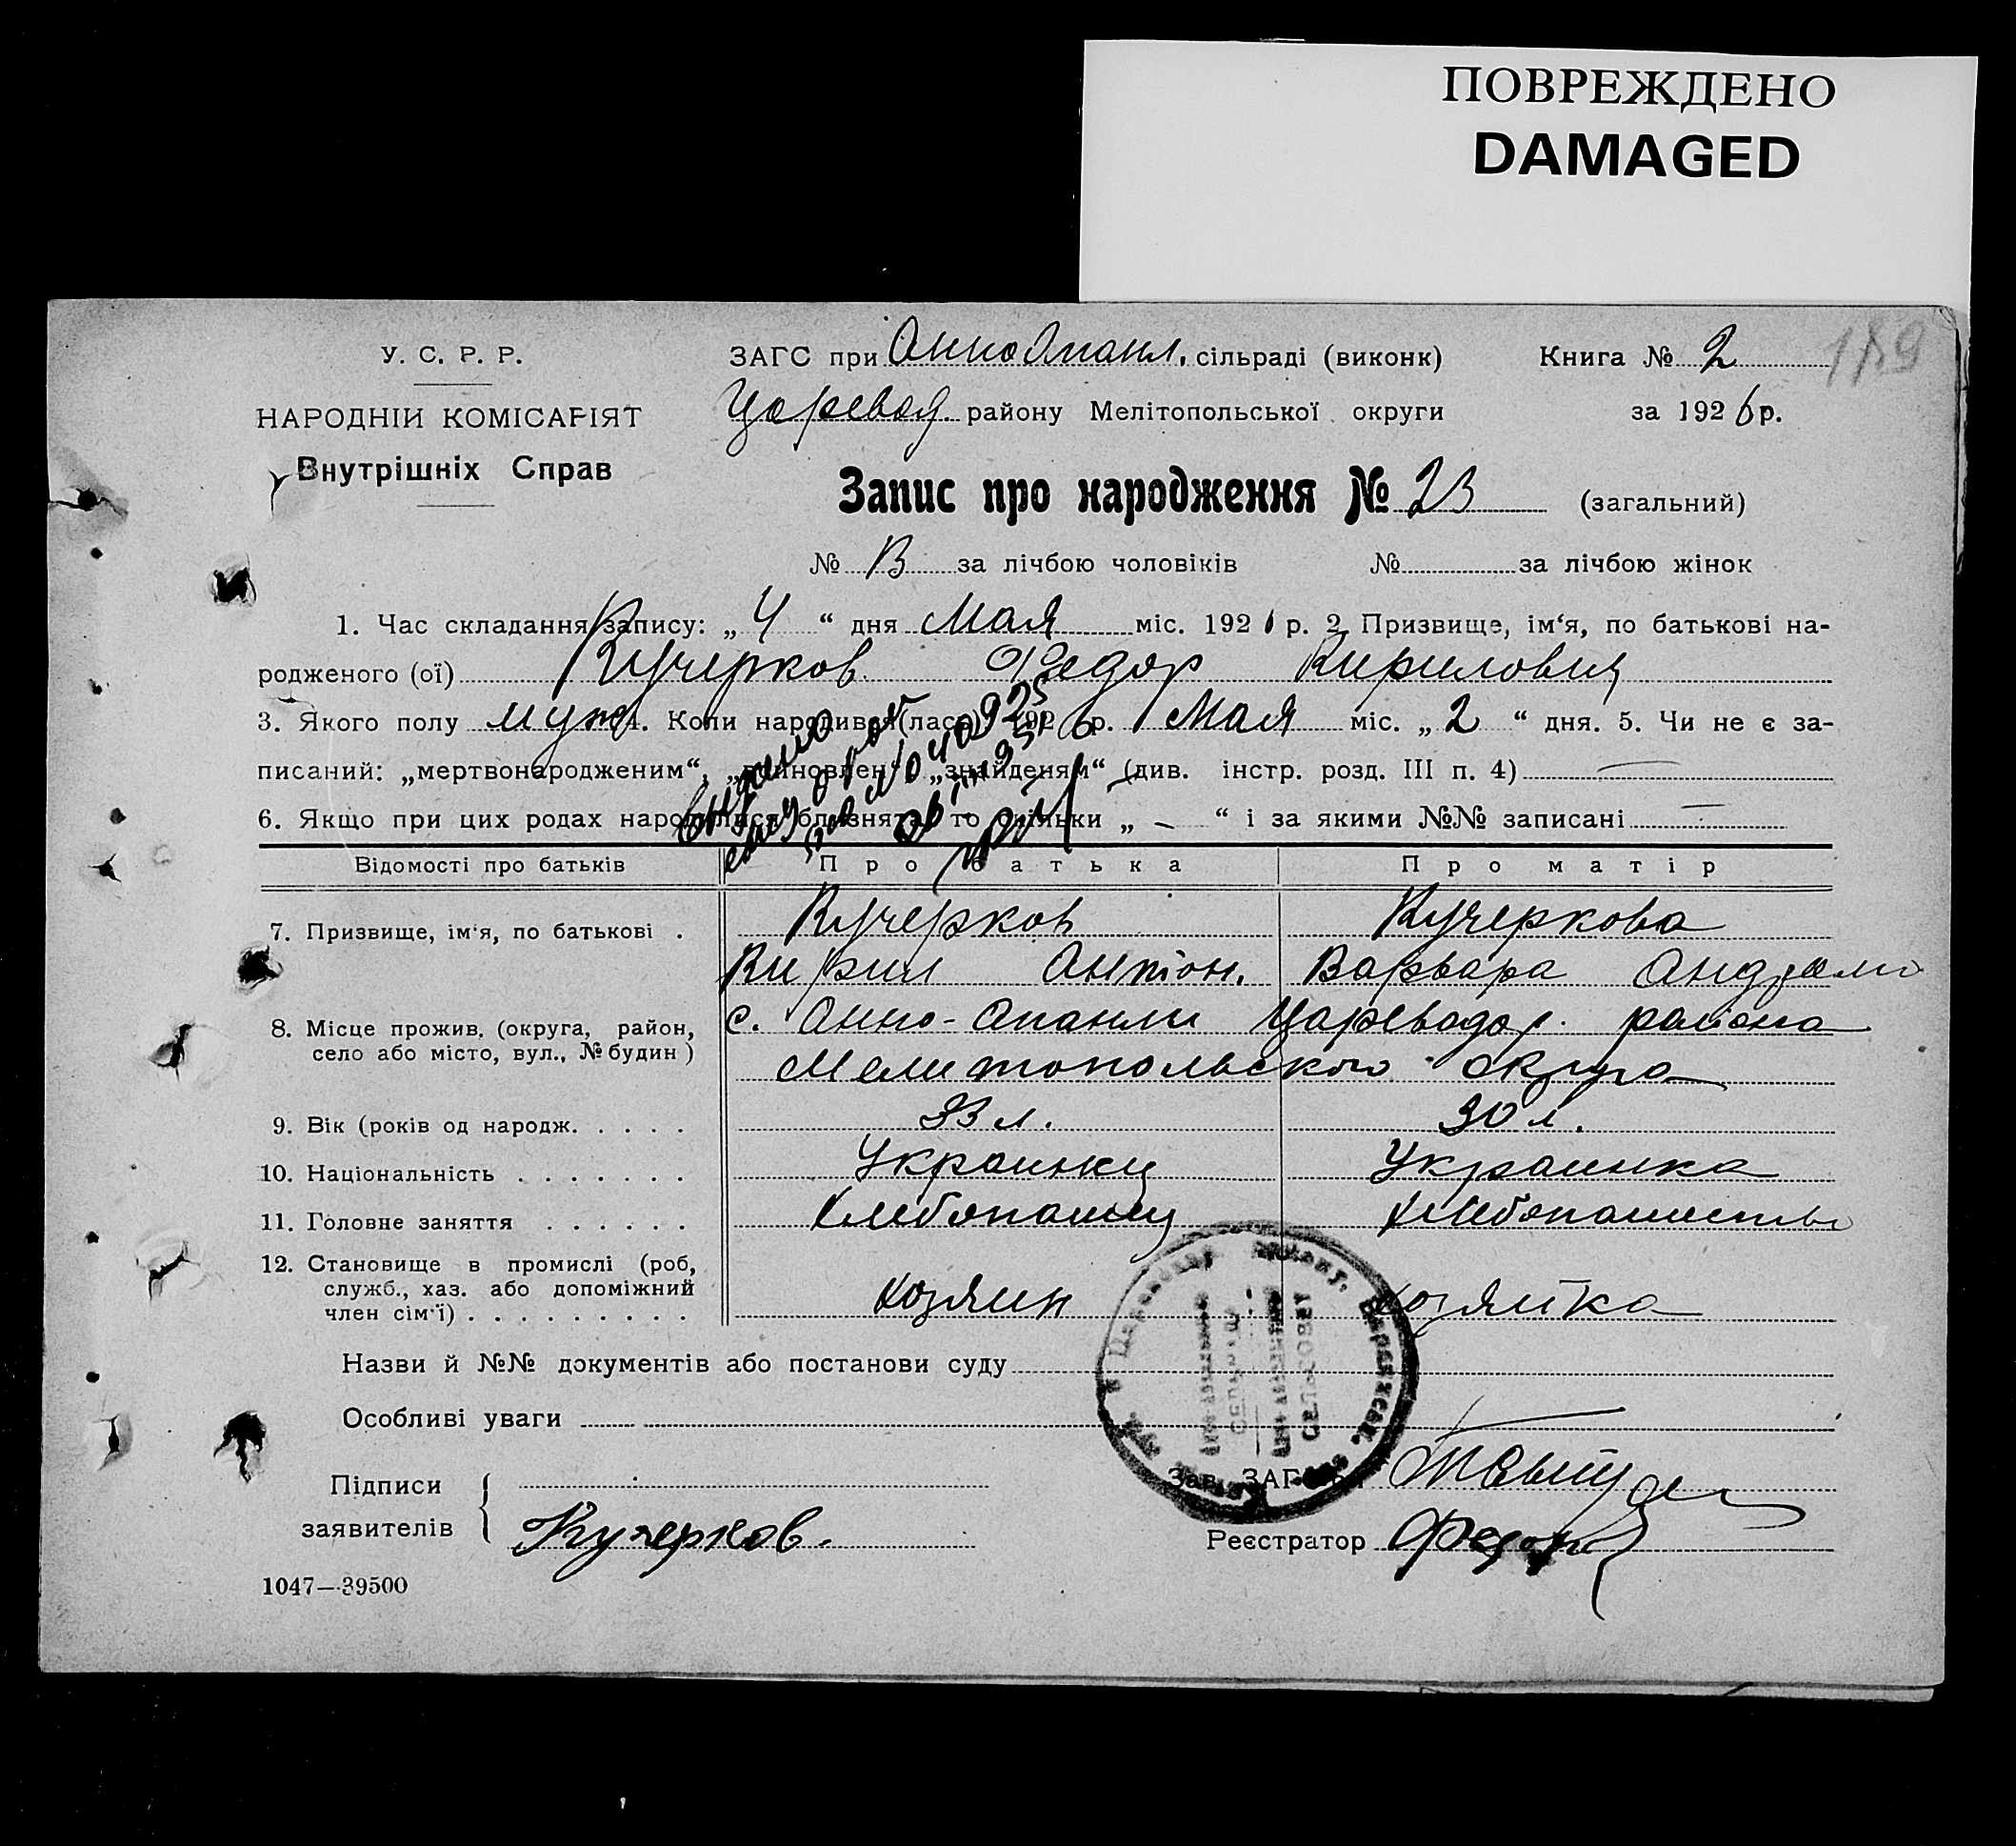 ПОВРЕЖДЕНО
DAMAGED
189
У. С. Р. Р.
НАРОДНІЙ КОМІСАРІЯТ
Внутрішніх Справ
ЗАГС при Анно Опанл. сільраді (виконк) Книга № 2
Царевод. району Мелітопольської округи за 1926 р.
Запис про народження № 23 (загальний)
№ 13 за лічбою чоловіків № за лічбою жінок
1. Час складання запису: „ 4 “ дня Мая міс. 1926 р. 2. Призвище, ім‘я, по батькові на-
родженого (ої) Кучерков Федор Кирилович
3. Якого полу муж 4. Коли народився(лась) 1926 р. Мая міс. „ 2 “ дня. 5. Чи не є за-
писаний: „мертвонародженим“, „знайденям“ (див. інстр. розд. III п. 4) —
6. Якщо при цих родах народилися близнята, то скільки „ – “ і за якими №№ записані —
Відомості про батьків Про батька Про матір
7. Призвище, ім‘я, по батькові . Кучерков Кучеркова
Кирил Антон. Варвара
8. Місце прожив. (округа, район, с. Анно-Опанли Цареводар. района
село або місто, вул., № будин) Мелитопольского округа
9. Вік (років од народж. . . . . 33 л. 30 л.
10. Національність . . . . . . . Украинец Украинка
11. Головне заняття . . . . . . Хлебопашец
12. Становище в промислі (роб,
служб., хаз. або допоміжний
член сім‘ї) . . . . . . . . . Хозяин Хозяйка
Назви й №№ документів або постанови суду
Особливі уваги
Підписи
заявителів Кучерков.
Зав. ЗАГС‘ом
Реєстратор
1047—39500